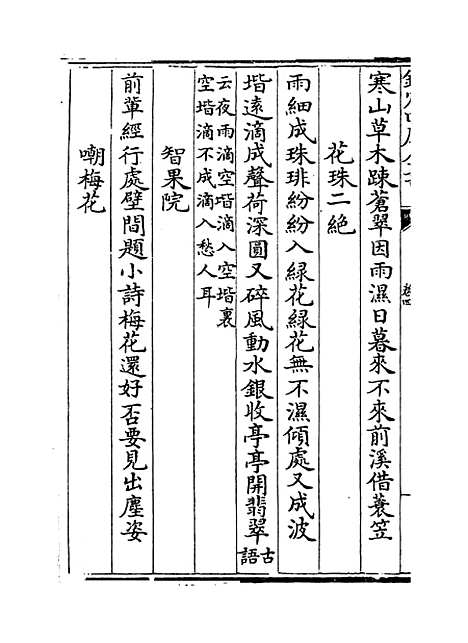 卷四
寒山草木疎蒼翠因雨濕日暮來不來前溪借蓑笠
花珠二絶
雨細成珠琲紛紛入緑花緑花無不濕傾處又成波
堦遠滴成聲荷深圓又碎風動水銀收亭亭開翡翠古語
云夜雨滴空堦滴入空堦裏
空堦滴不成滴入愁人耳
智果院
前輩經行處壁間題小詩梅花還好否要見出塵姿
嘲梅花